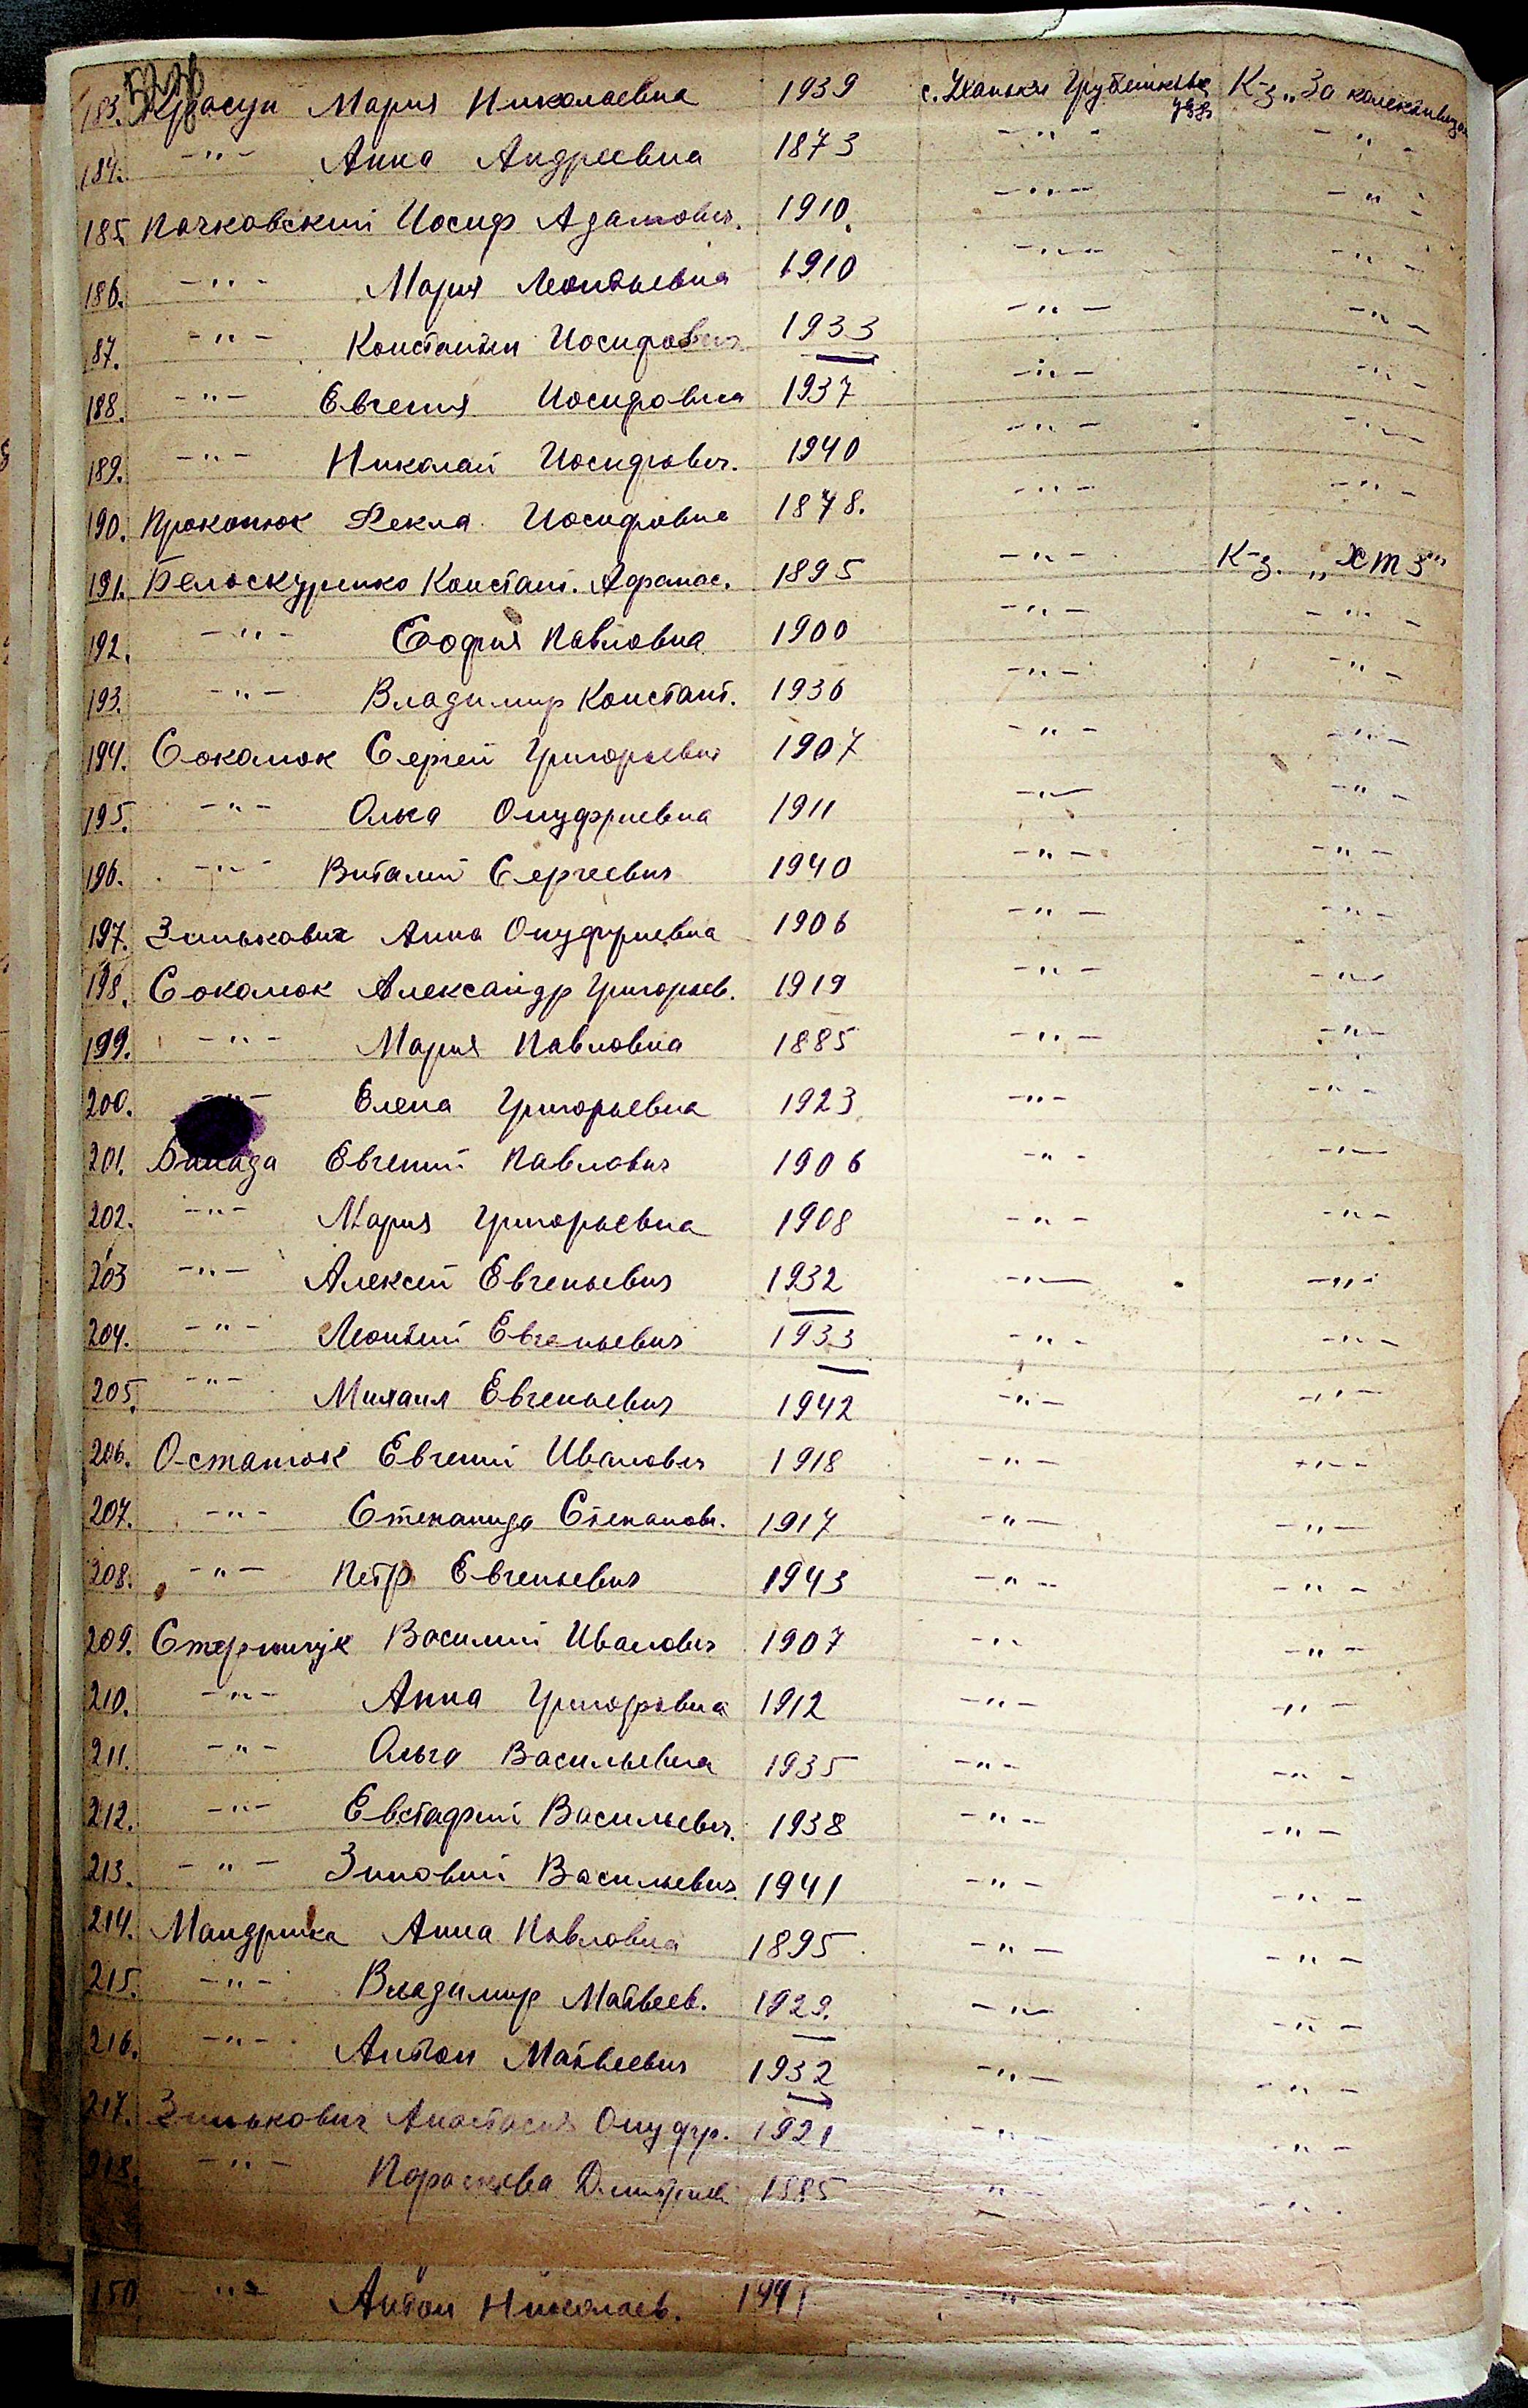 183. Красун Мария Николаевна 1939 с. Уханьки Грубешивск. К-з „За колективиза
уезд
184. -"- Анна Андреевна 1873 -"- -"-
185. Пачковский Иосиф Адамович. 1910. -"- -"-
186. -"- Мария Леонтьевна 1910 -"- -"-
87. -"- Константин Иосифович 1933 -"- -"-
188. -"- Евгения Иосифовна 1937 -"- -"-
189. -"- Николай Иосифович. 1940 -"- -"-
190. Прокопюк Фекла Иосифовна 1878. -"- -"-
191. Белоскуренко Констант. Афанас. 1895 -"- К-з. „ХТЗ"
192. -"- София Павловна 1900 -"- -"-
193. -"- Владимир Констант. 1936 -"- -"-
194. Сокалюк Сергей Григорьевич 1907 -"- -"-
195. -"- Олька Онуфриевна 1911 -"- -"-
196. -"- Виталий Сергеевич 1940 -"- -"-
197. Зинькович Анна Онуфриевна 1906 -"- -"-
198. Сокалюк Александр Григорьев. 1919 -"- -"-
199. -"- Мария Павловна 1885 -"- -"-
200. -"- Елена Григорьевна 1923 -"- -"-
201. Евгений Павлович 1906 -"- -"-
202. -"- Мария Григорьевна 1908 -"- -"-
203 -"- Алексей Евгеньевич 1932 -"- -"-
204. -"- Леонтий Евгеньевич 1933 -"- -"-
205. -"- Михаил Евгеньевич 1942 -"- -"-
206. Остапюк Евгений Иванович 1918 -"- -"-
207. -"- Степанида Степанов. 1917 -"- -"-
208. -"- Петр Евгеньевич 1943 -"- -"-
209. Стерничук Василий Иванович 1907 -"- -"-
210. -"- Анна Григоровна 1912 -"- -"-
211. -"- Ольга Васильевна 1935 -"- -"-
212. -"- Евстафий Васильевич. 1938 -"- -"-
213. -"- Зиновий Васильевич 1941 -"- -"-
214. Мандрика Анна Павловна 1895 -"- -"-
215. -"- Владимир Матвеев. 1929. -"- -"-
216. -"- Антон Матвеевич 1932 -"- -"-
217. Зинькович Анастасия Онуфр. 1921 -"- -"-
218. -"- Парасковa Дмитриев. 1885 -"- -"-
150 -"- Антон Николаев. 1941 -"-